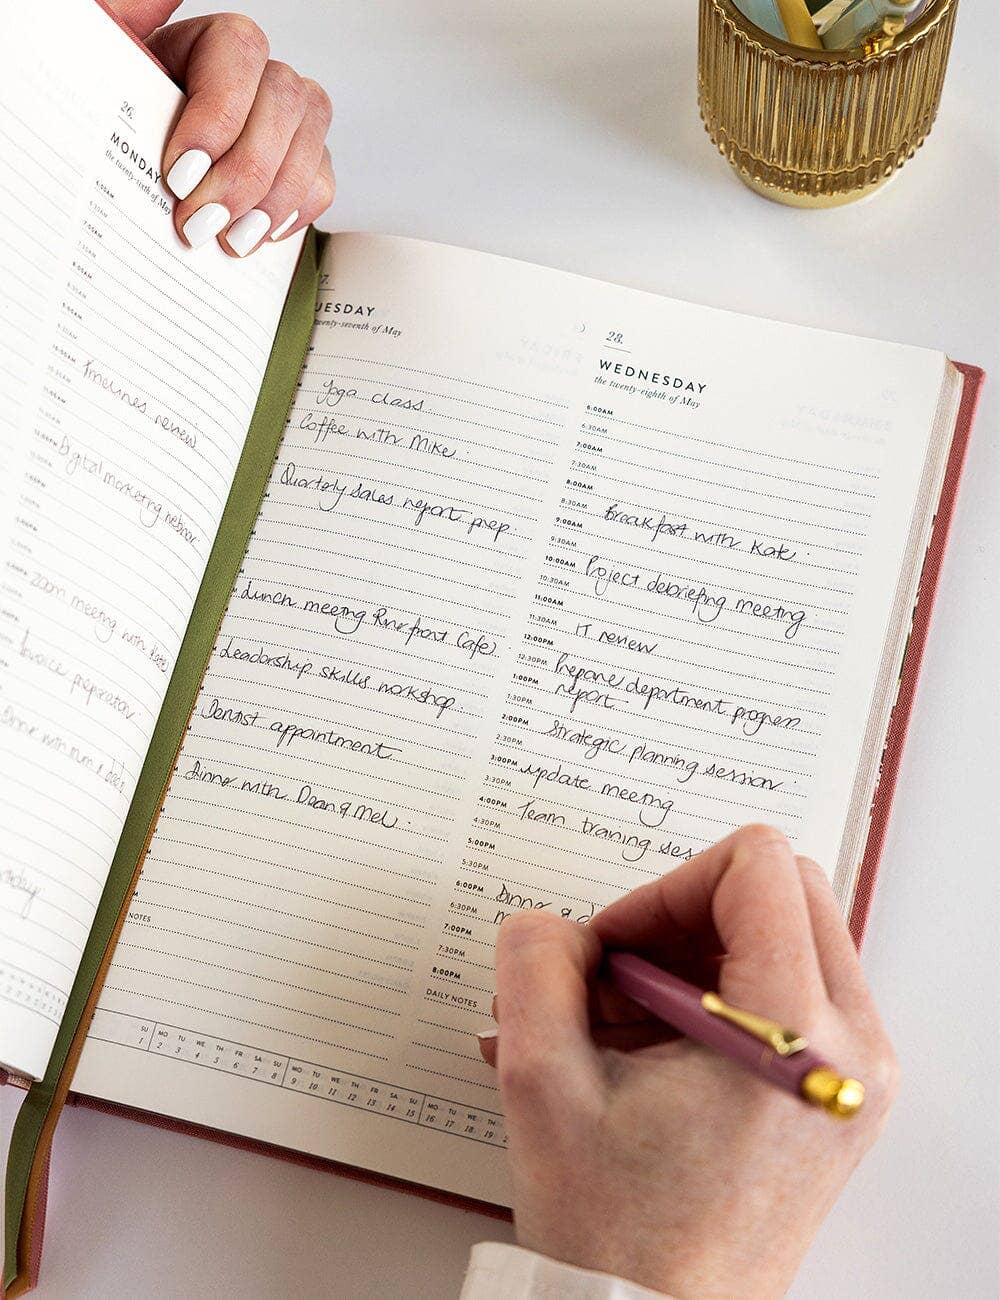 26.
MONDAY
the twenty-sixth of May
6:00AM
6:30AM
7:00AM
7:30AM
8:00AM
8:30AM
9:00AM
9:30AM
10:00AM
Timelines review
10:30AM
11:00AM
11:30AM
12:00PM
Digital marketing webinar
Zoom meeting with Kate
Invoice preparation
Dinner with mum & dad
7.
UESDAY
twenty-seventh of May
Yoga class
Coffee with Mike
Quarterly sales report prep
Lunch meeting Riverfront Cafe
Leadership skills workshop
Dentist appointment
Dinner with Dean & Mel
NOTES
28.
WEDNESDAY
the twenty-eighth of May
6:00AM
6:30AM
7:00AM
7:30AM
8:00AM
8:30AM Breakfast with Kate
9:00AM
9:30AM
10:00AM Project debriefing meeting
10:30AM
11:00AM
11:30AM IT review
12:00PM
12:30PM Prepare department progress
1:00PM report
1:30PM
2:00PM Strategic planning session
2:30PM
3:00PM update meeting
3:30PM
4:00PM Team training ses
4:30PM
5:00PM
5:30PM
6:00PM Dinner & d
6:30PM m
7:00PM
7:30PM
8:00PM
DAILY NOTES
SU MO TU WE TH FR SA SU MO TU WE TH FR SA SU MO TU WE TH
1 2 3 4 5 6 7 8 9 10 11 12 13 14 15 16 17 18 19 2